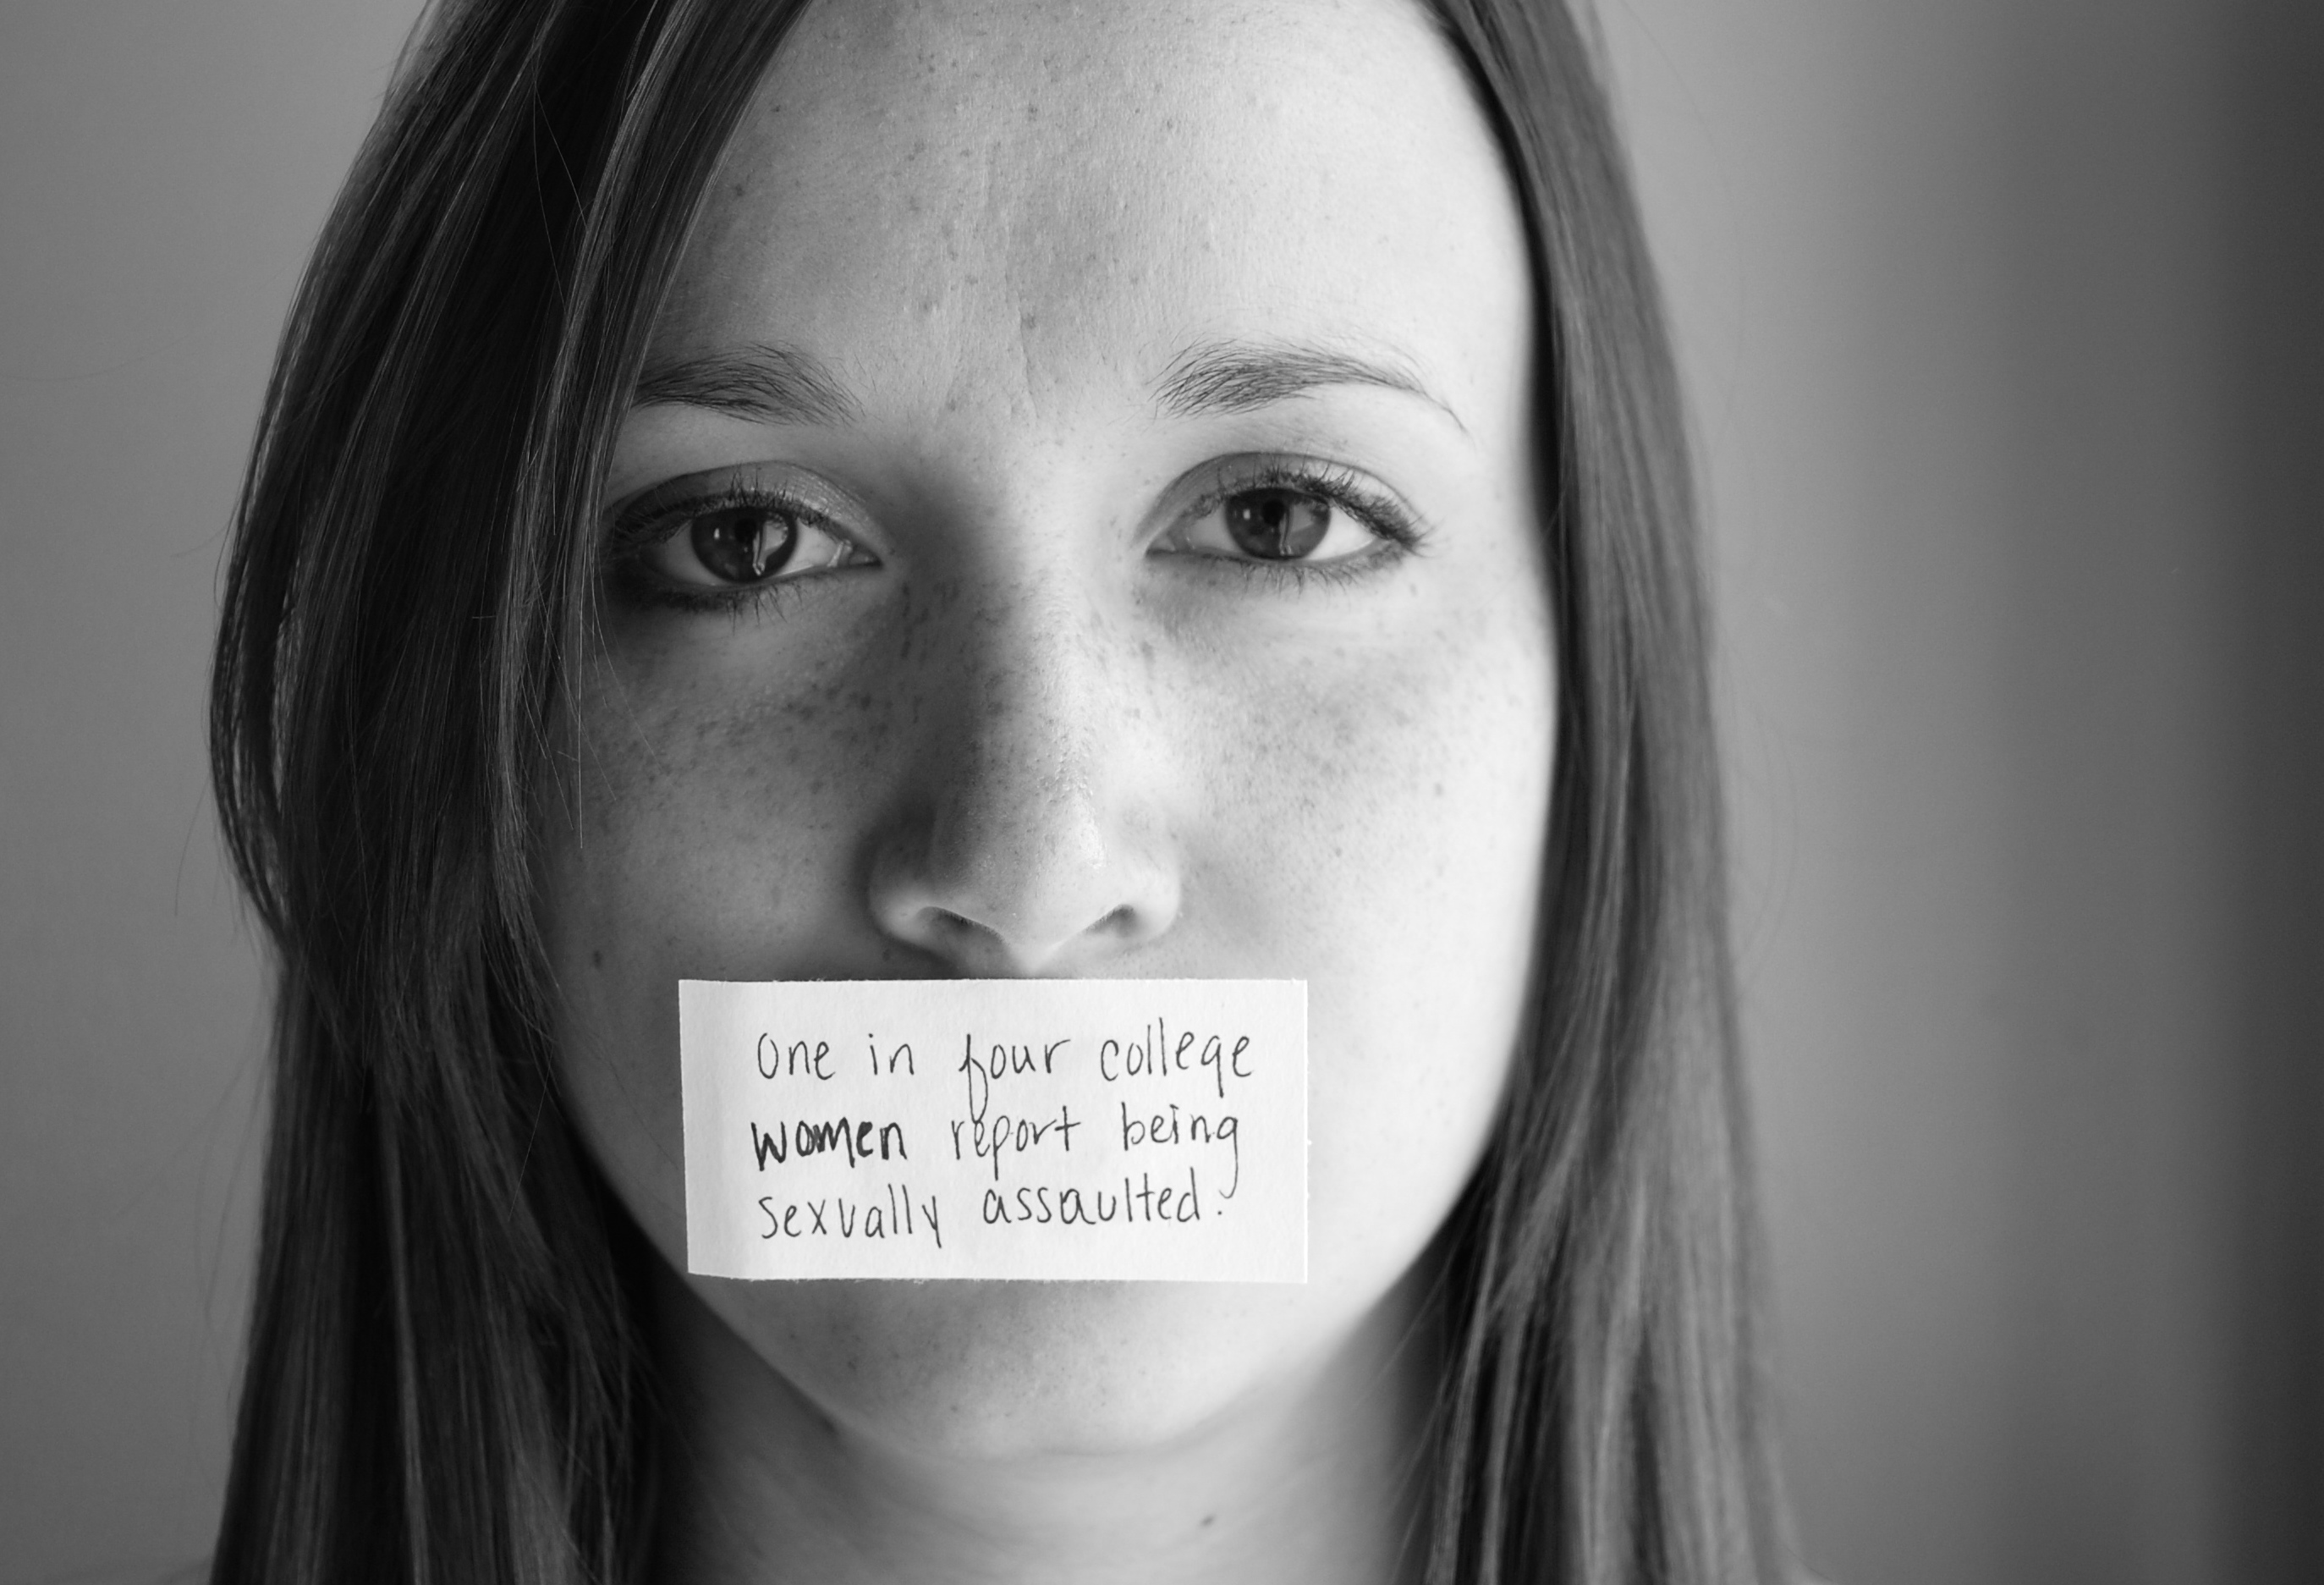 One in four college
women report being
sexually assaulted.